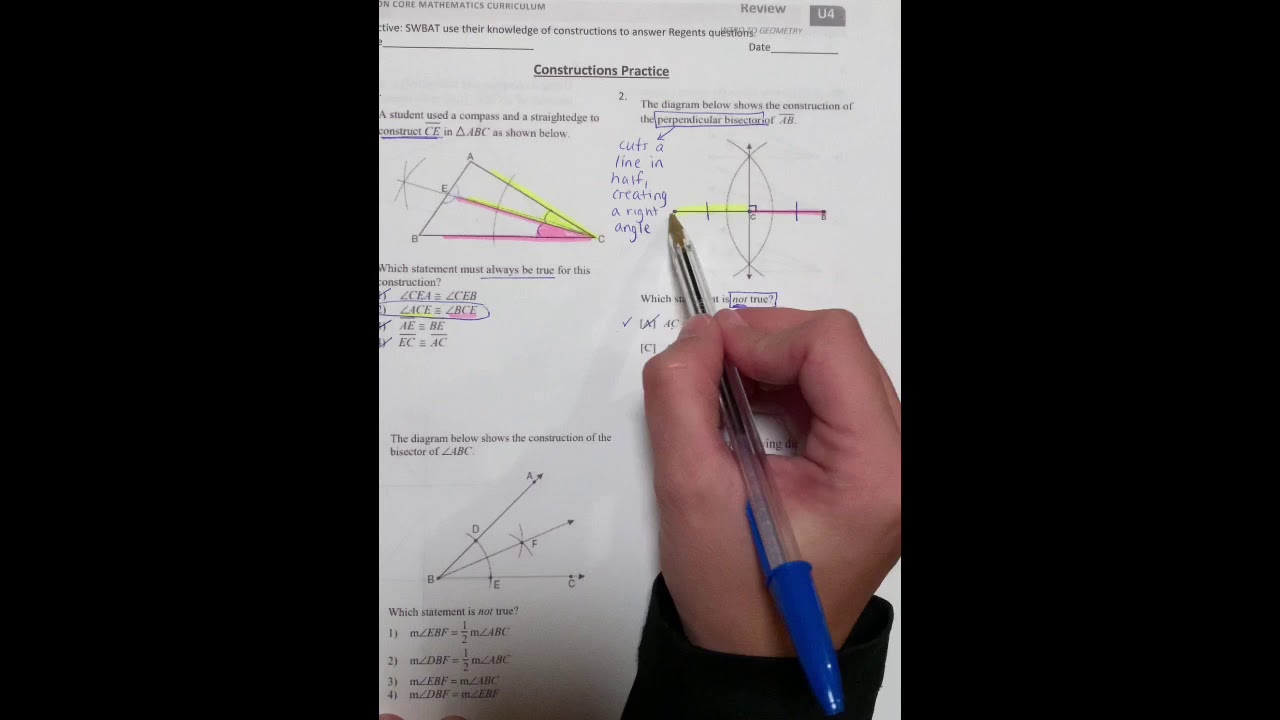 ON CORE MATHEMATICS CURRICULUM
Review
U4
ctive: SWBAT use their knowledge of constructions to answer Regents questions
TO GEOMETRY
e
Date
Constructions Practice
A student used a compass and a straightedge to
construct CE in △ABC as shown below.
A
E
B
C
Which statement must always be true for this
construction?
∠CEA ≅ ∠CEB
∠ACE ≅ ∠BCE
AE ≅ BE
EC ≅ AC
2.
The diagram below shows the construction of
the perpendicular bisector of AB.
cuts a
line in
half,
creating
a right
angle
C
B
Which st t is not true?
✓ [A] AC
[C]
ving di
The diagram below shows the construction of the
bisector of ∠ABC.
A
D
F
B
E
C
Which statement is not true?
1) m∠EBF = 1/2 m∠ABC
2) m∠DBF = 1/2 m∠ABC
3) m∠EBF = m∠ABC
4) m∠DBF = m∠EBF